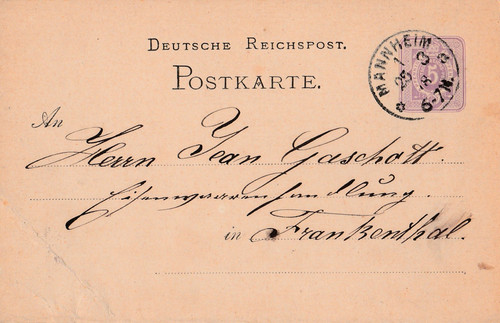 DEUTSCHE REICHSPOST.
POSTKARTE.
MANNHEIM
6-7N.
An
Herrn Jean Gaschott.
Eisenwaarenhandlung.
in Frankenthal.